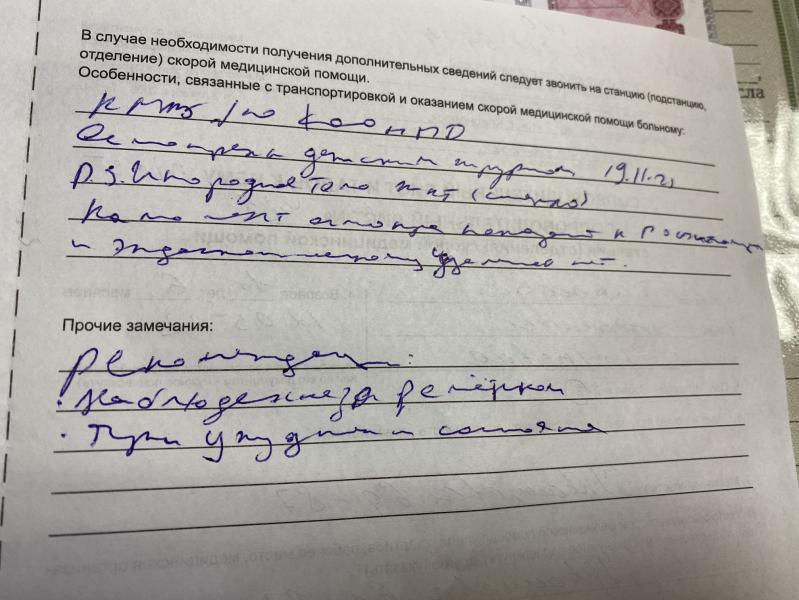 В случае необходимости получения дополнительных сведений следует звонить на станцию (подстанцию,
отделение) скорой медицинской помощи.
Особенности, связанные с транспортировкой и оказанием скорой медицинской помощи больному:
Осмотрена детским хирургом 19.11.21
D.S. Инородное тело жкт (
На момент осмотра показаний к госпитализации
и эндоскопическому удалению нет.
Прочие замечания:
Рекомендации:
· Наблюдение за ребёнком
· При ухудшении состояния